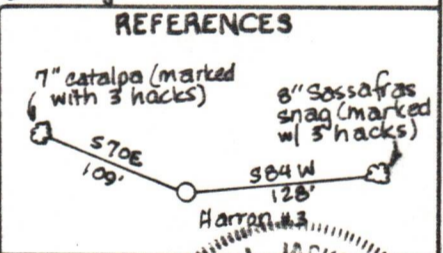 REFERENCES
7" catalpa (marked
with 3 hacks)
8" Sassafras
snag (marked
w/ 3 hacks)
S70E
109'
S84W
128'
Harron #3